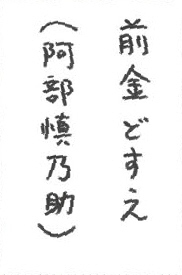 前金どすえ
（阿部慎乃助）